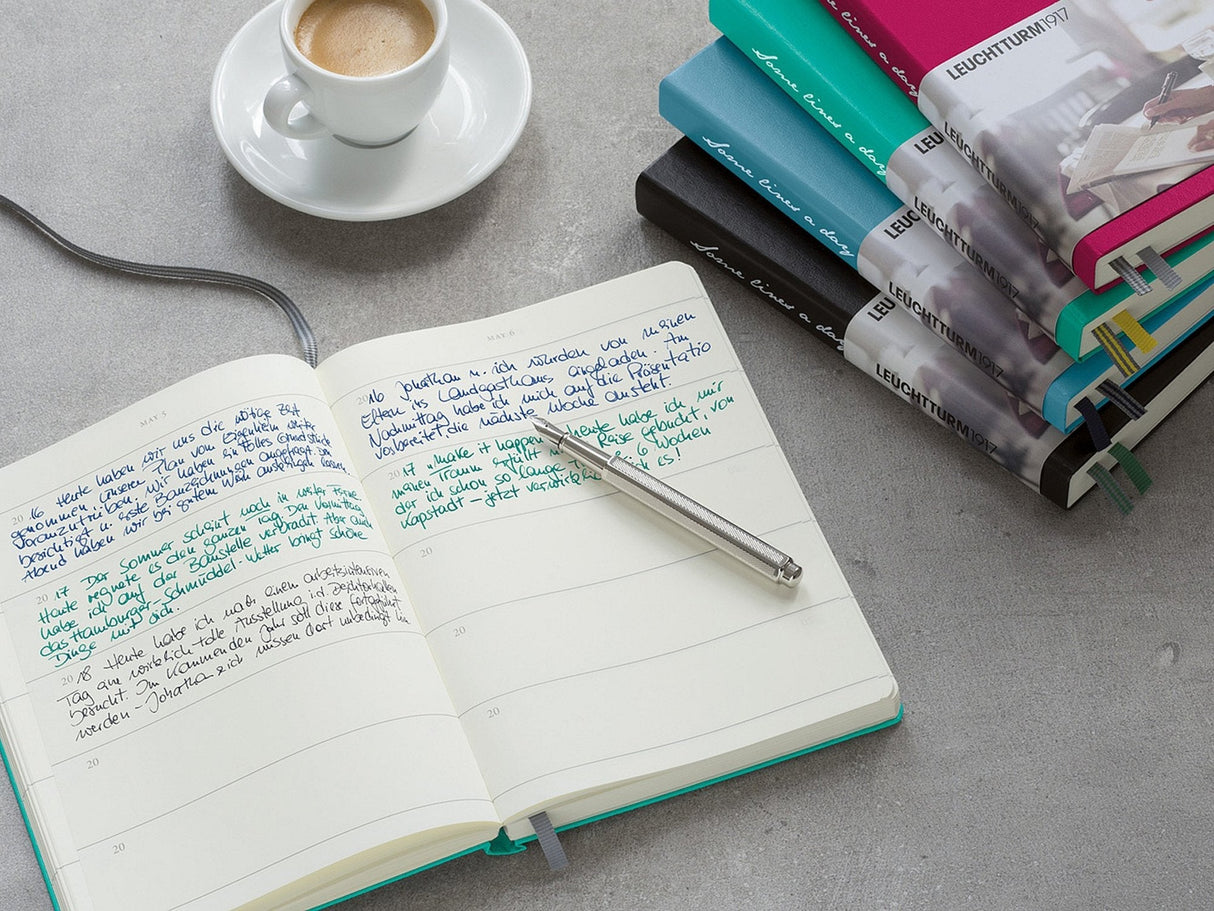 MAY 5
20 16 Heute haben wir uns die nötige Zeit
genommen, unseren Plan vom Eigenheim weiter
voranzutreiben. Wir haben ein tolles Grundstück
besichtigt u. erste Bauzeichnungen angefragt. Den
Abend haben wir bei gutem Wein ausklingen lassen.
20 17 Der Sommer scheint noch in weiter Ferne.
Heute regnete es den ganzen Tag. Den Vormittag
habe ich auf der Baustelle verbracht. Aber auch
das Hamburger-Schmuddel-Wetter bringt schöne
Dinge mit sich.
20 18 Heute habe ich nach einem arbeitsintensiven
Tag eine wirklich tolle Ausstellung i.d. Deichtorhallen
besucht. Im kommenden Jahr soll diese fortgeführt
werden - Jonathan & ich müssen dort unbedingt hin
20
20
MAY 6
2016 Jonathan u. ich wurden von meinen
Eltern ins Landgasthaus eingeladen. Am
Nachmittag habe ich mich auf die Präsentatio
vorbereitet, die nächste Woche ansteht.
20 17 "make it happen Heute habe ich mir
meinen Traum erfüllt Reise gebucht, von
der ich schon so lange 6 Wochen
Kapstadt - jetzt ich es!
20
20
20
Some lines a day
LEUCHTTURM1917
LEUCHTTURM1917
Some lines a day
LEU
LEUCHTTURM1917
Some lines a day
LEUC
LEUCHTTURM1917
Some lines a day
LEU
LEUCHTTURM1917